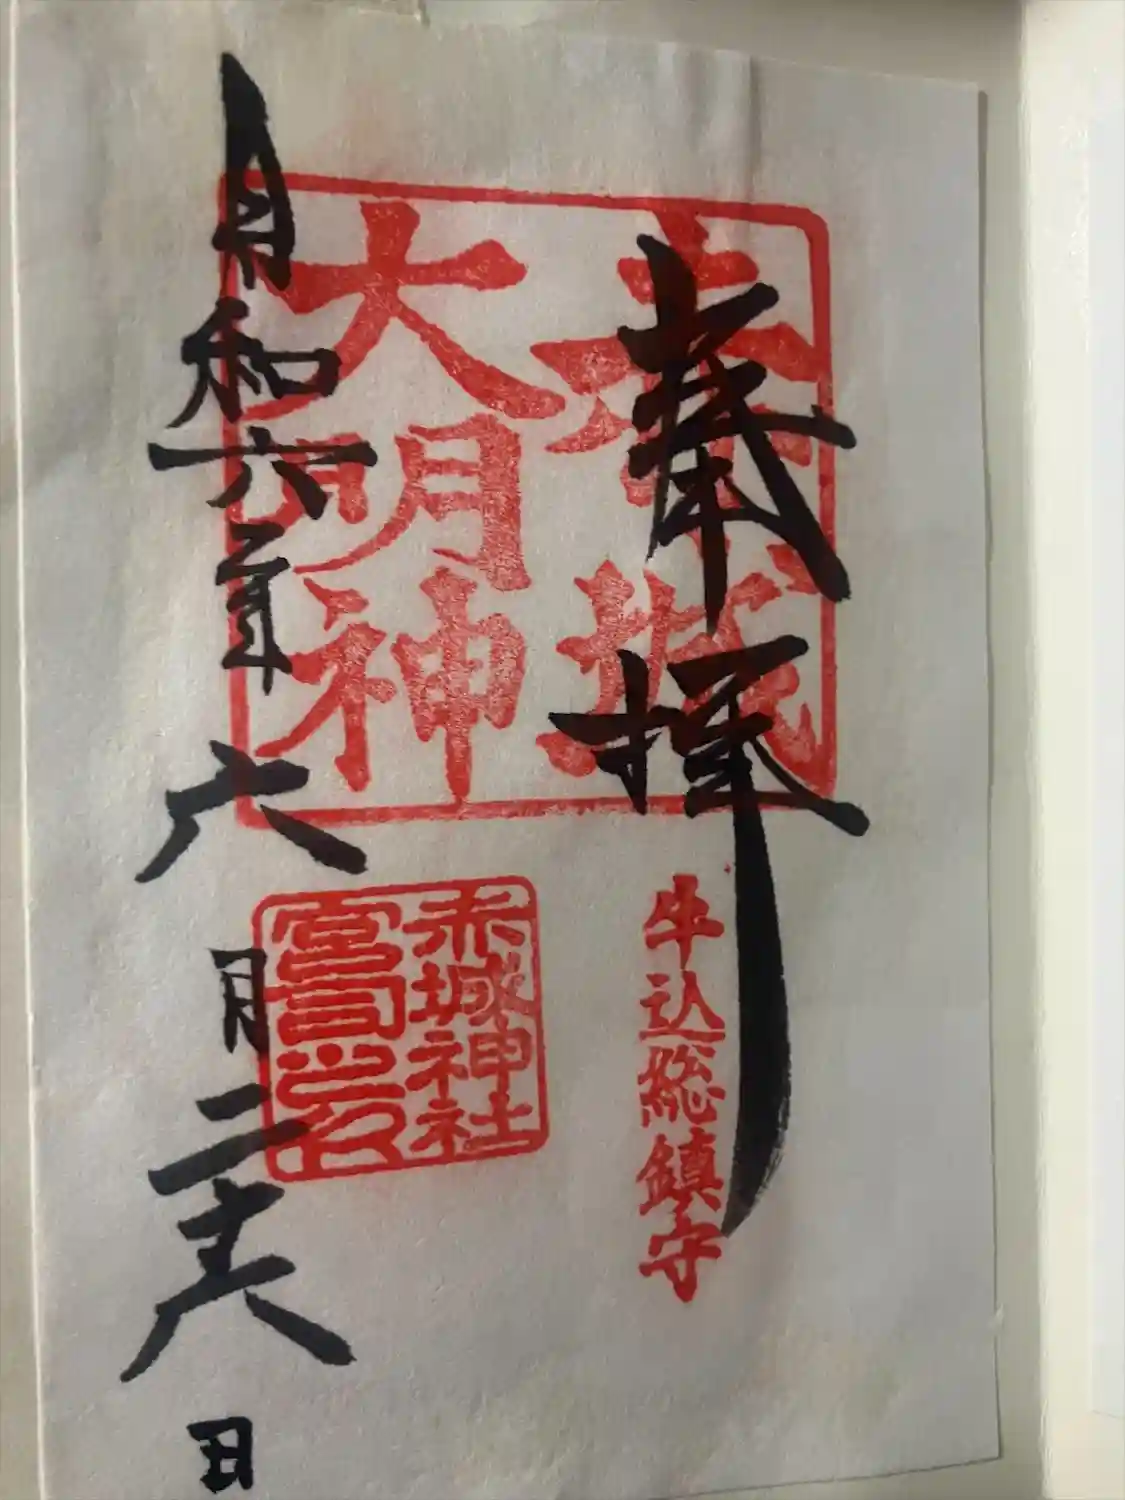 奉拝
赤城
大明神
牛込総鎮守
赤城神社
宮司之印
令和六年六月二十六日